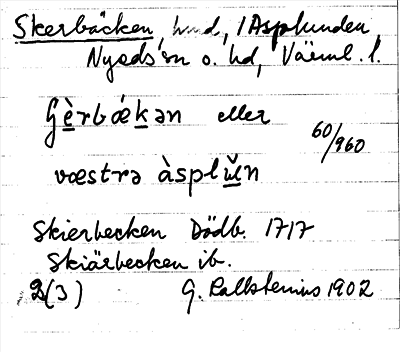 Skerbäcken, hmd, i Asplunden
Nyeds sn o. hd, Värml. l.
Gèrbǽkən eller
60/960
væstrə àsplŭn
Skierbecken Dödb. 1717
Skiärbecken ib.
2(3) G. Kallstenius 1902